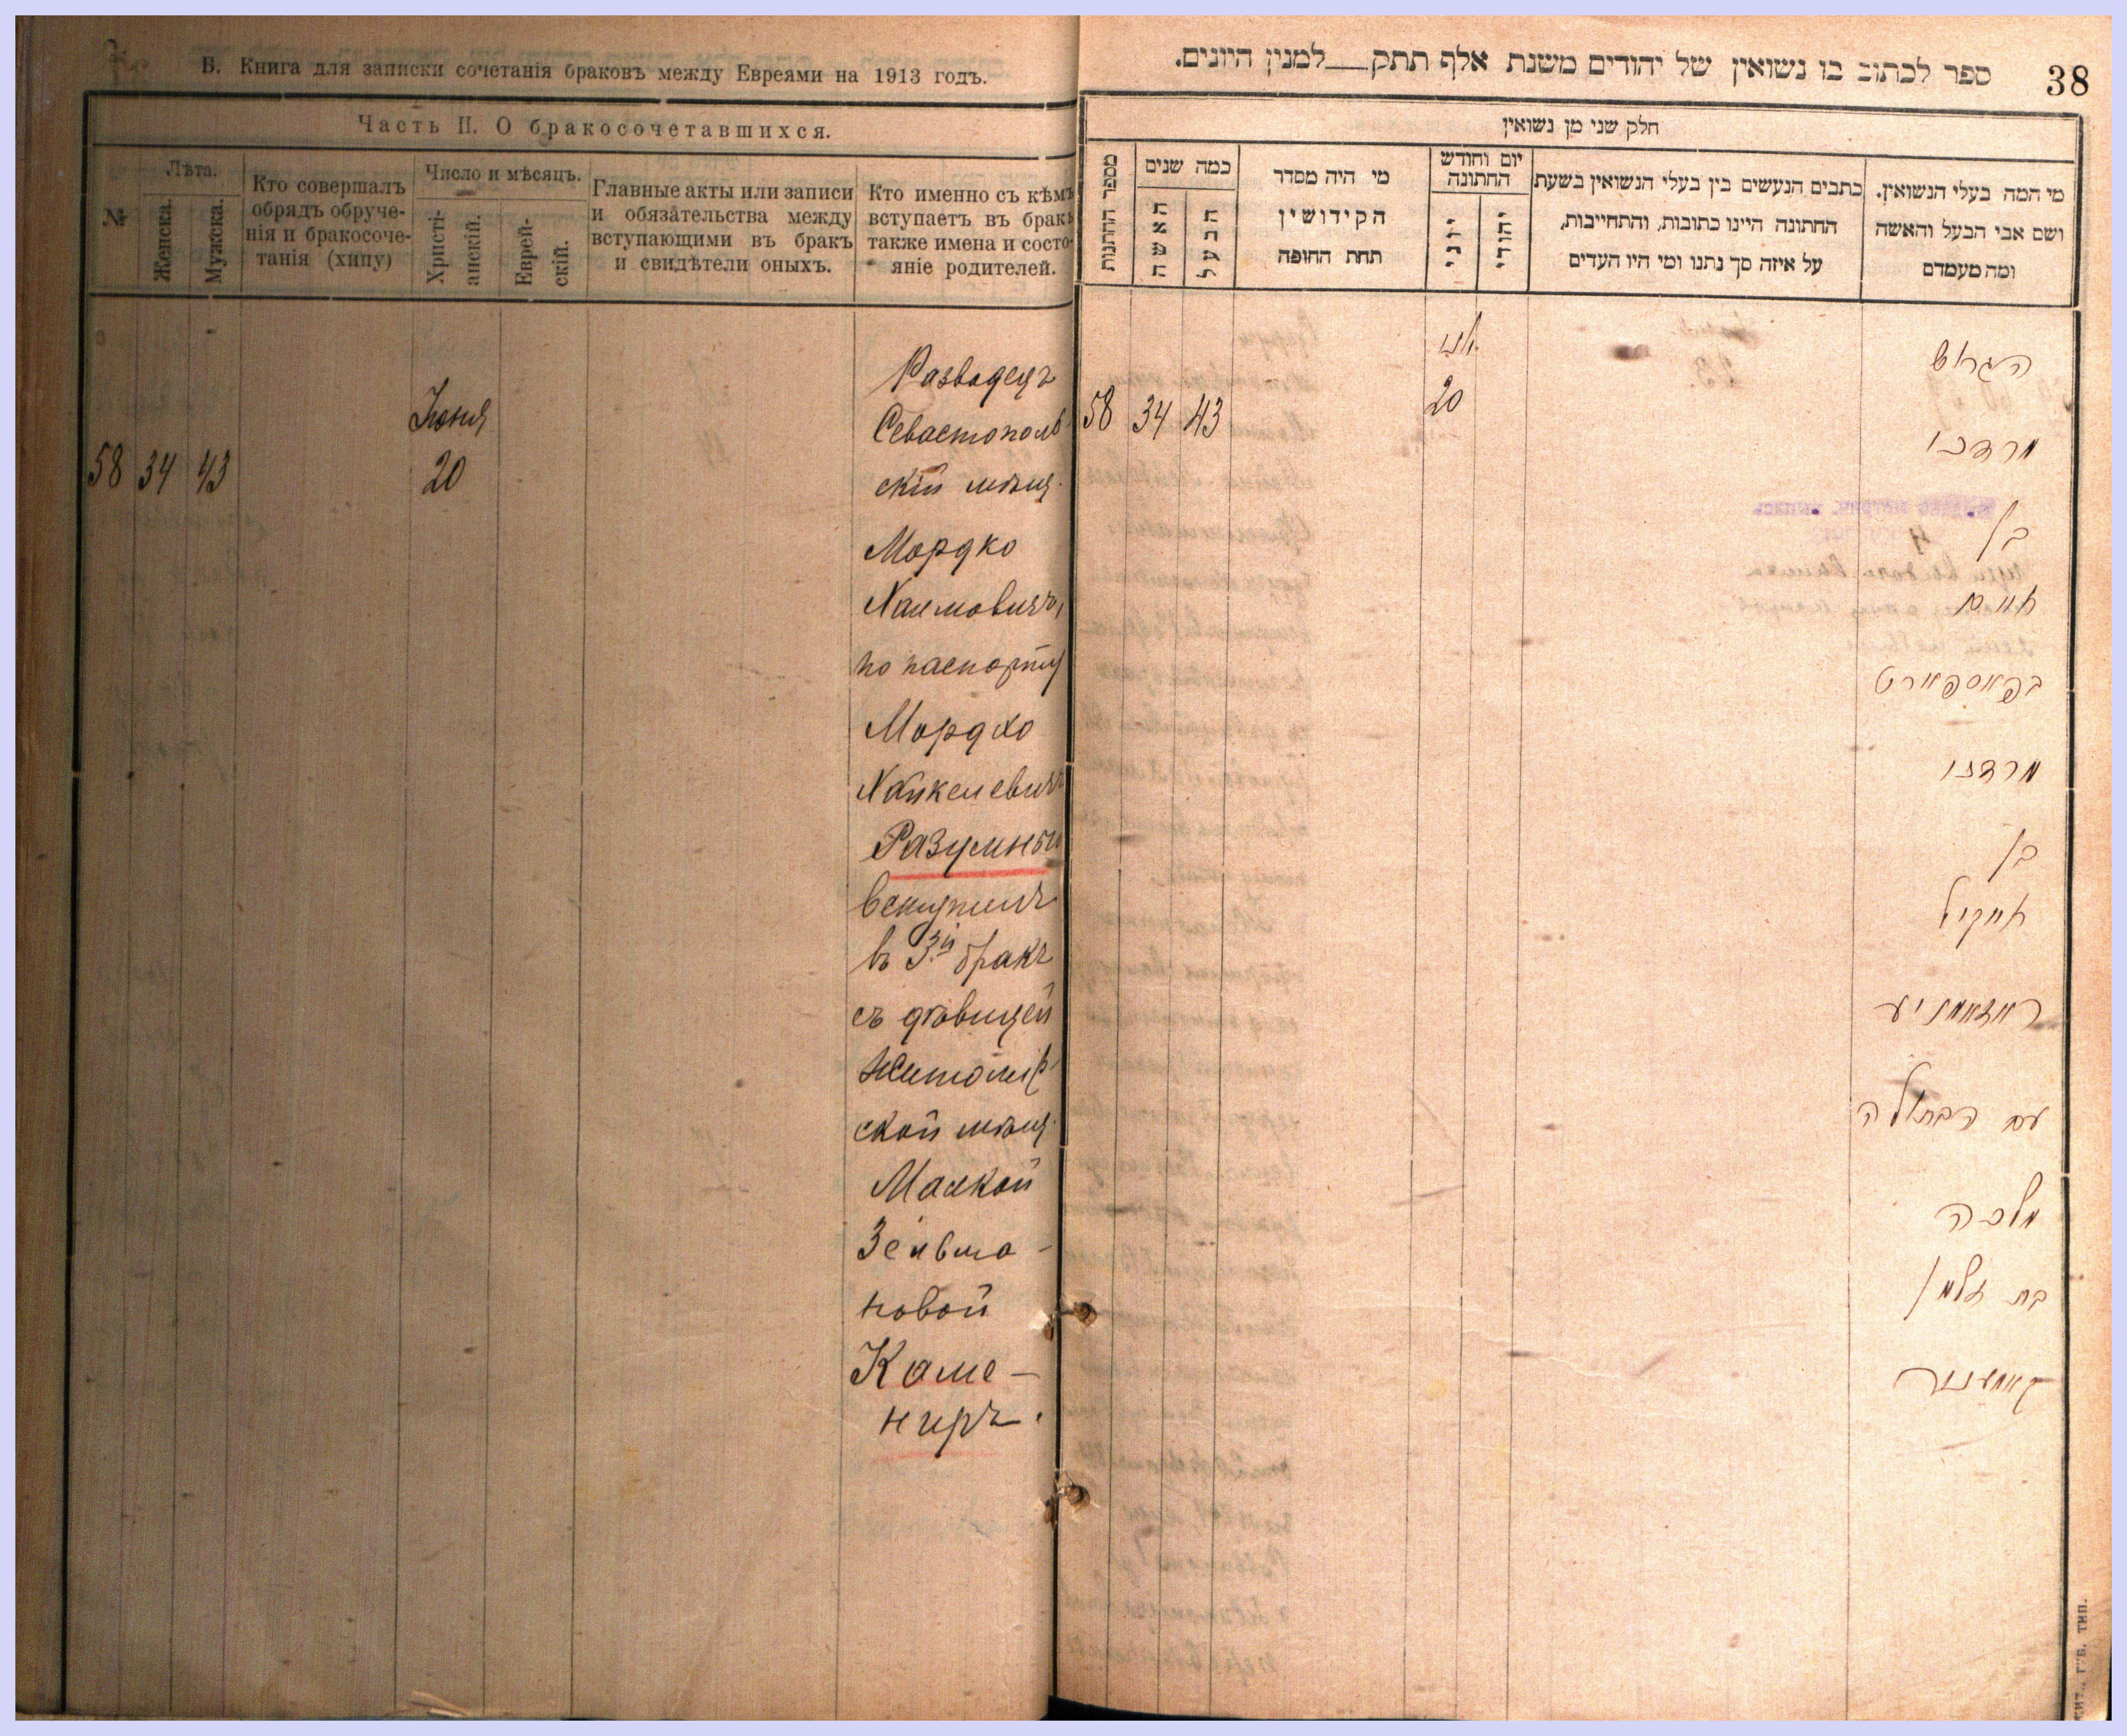 В. Книга для записки сочетанія браковъ между Евреями на 1913 годъ.
Часть II. О бракосочетавшихся.
№
Лѣта.
Женска.
Мужска.
Кто совершалъ
обрядъ обруче-
нія и бракосоче-
танія (хипу)
Число и мѣсяцъ.
Христі-
анскій.
Еврей-
скій.
Главные акты или записи
и обязательства между
вступающими въ бракъ
и свидѣтели оныхъ.
Кто именно съ кѣмъ
вступаетъ въ бракъ
также имена и состо-
яніе родителей.
58 34 43
Іюня
20
Разводецъ
Севастополь
скій мѣщ.
Мордко
Хаимовичъ,
по паспорту
Мордхо
Хайкелевичъ
Разумный
вступилъ
въ 3й бракъ
съ дѣвицей
Житомір
ской мѣщ.
Малкой
Зельма-
новой
Каме-
ниръ.
38
ספר לכתוב בו נשואין של יהודים משנת אלף תתק__למנין היונים.
חלק שני מן נשואין
מספר החתונות
כמה שנים
האשה
הבעל
מי היה מסדר
הקידושין
תחת החופה
יום וחודש
החתונה
יוני
יהודי
כתבים הנעשים בין בעלי הנשואין בשעת
החתונה היינו כתובות, והתחייבות,
על איזה סך נתנו ומי היו העדים
מי המה בעלי הנשואין.
ושם אבי הבעל והאשה
ומה מעמדם
58 34 43
20
הגרוש
מרדכו
בן
חיים
בפאספארט
מרדכו
בן
חייקיל
ראזומניע
עם הבתולה
מלכה
בת זלמן
קאמענער